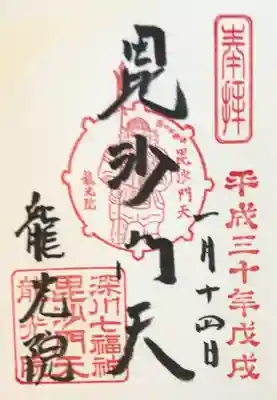 奉拝
平成三十年戊戌
一月十四日
毘沙門天
毘沙門天
龍光院
深川七福神
毘沙門天
龍光院
龍光院